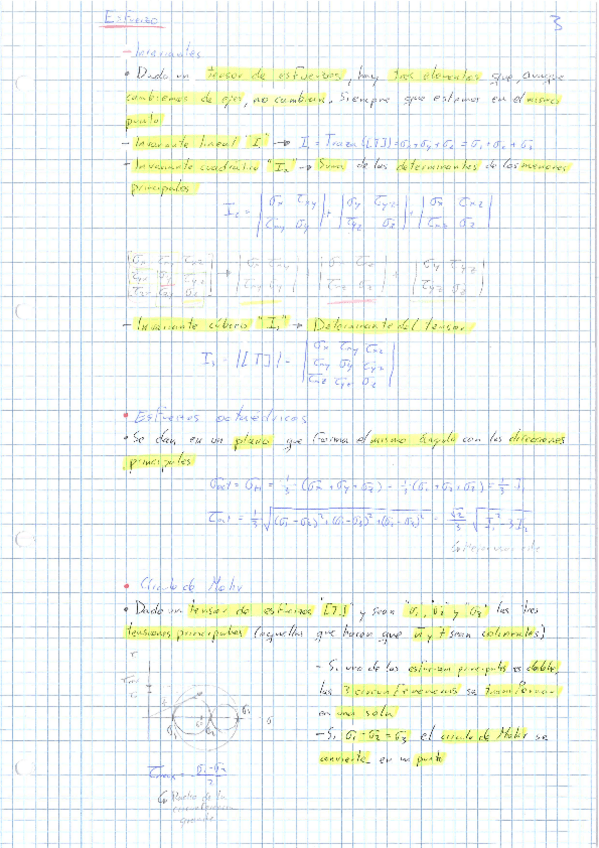 Esfuerzo
3
- Invariantes
• Dado un tensor de esfuerzos, hay tres elementos que, aunque
cambiemos de ejes, no cambian, siempre que estemos en el mismo
punto
- Invariante lineal "I₁" → I₁ = Traza([T]) = σx + σy + σz = σ₁ + σ₂ + σ₃
- Invariante cuadrático "I₂" → Suma de los determinantes de los menores
principales
I₂ = |σx τxy; τxy σy| + |σy τyz; τyz σz| + |σx τxz; τxz σz|
- Invariante cúbico "I₃" → Determinante del tensor
I₃ = |[T]| = |σx τxy τxz; τxy σy τyz; τxz τyz σz|
• Esfuerzos octaédricos
• Se dan en un plano que forma el mismo ángulo con las direcciones
principales
σoct = σm = 1/3 · (σx + σy + σz) = 1/3 · (σ₁ + σ₂ + σ₃) = 1/3 I₁
τoct = 1/3 √((σ₁ - σ₂)² + (σ₁ - σ₃)² + (σ₂ - σ₃)²) = √2/3 √(I₁² - 3I₂)
• Círculo de Mohr
• Dado un tensor de esfuerzos "[T]" y sean "σ₁", "σ₂" y "σ₃" las tres
tensiones principales (aquellas que hacen que n y t sean colineales)
- Si uno de los esfuerzos principales es doble,
las 3 circunferencias se transforman
en una sola
- Si σ₁ = σ₂ = σ₃ el círculo de Mohr se
convierte en un punto
τmax = (σ₁ - σ₃)/2
Radio de la
circunferencia
grande